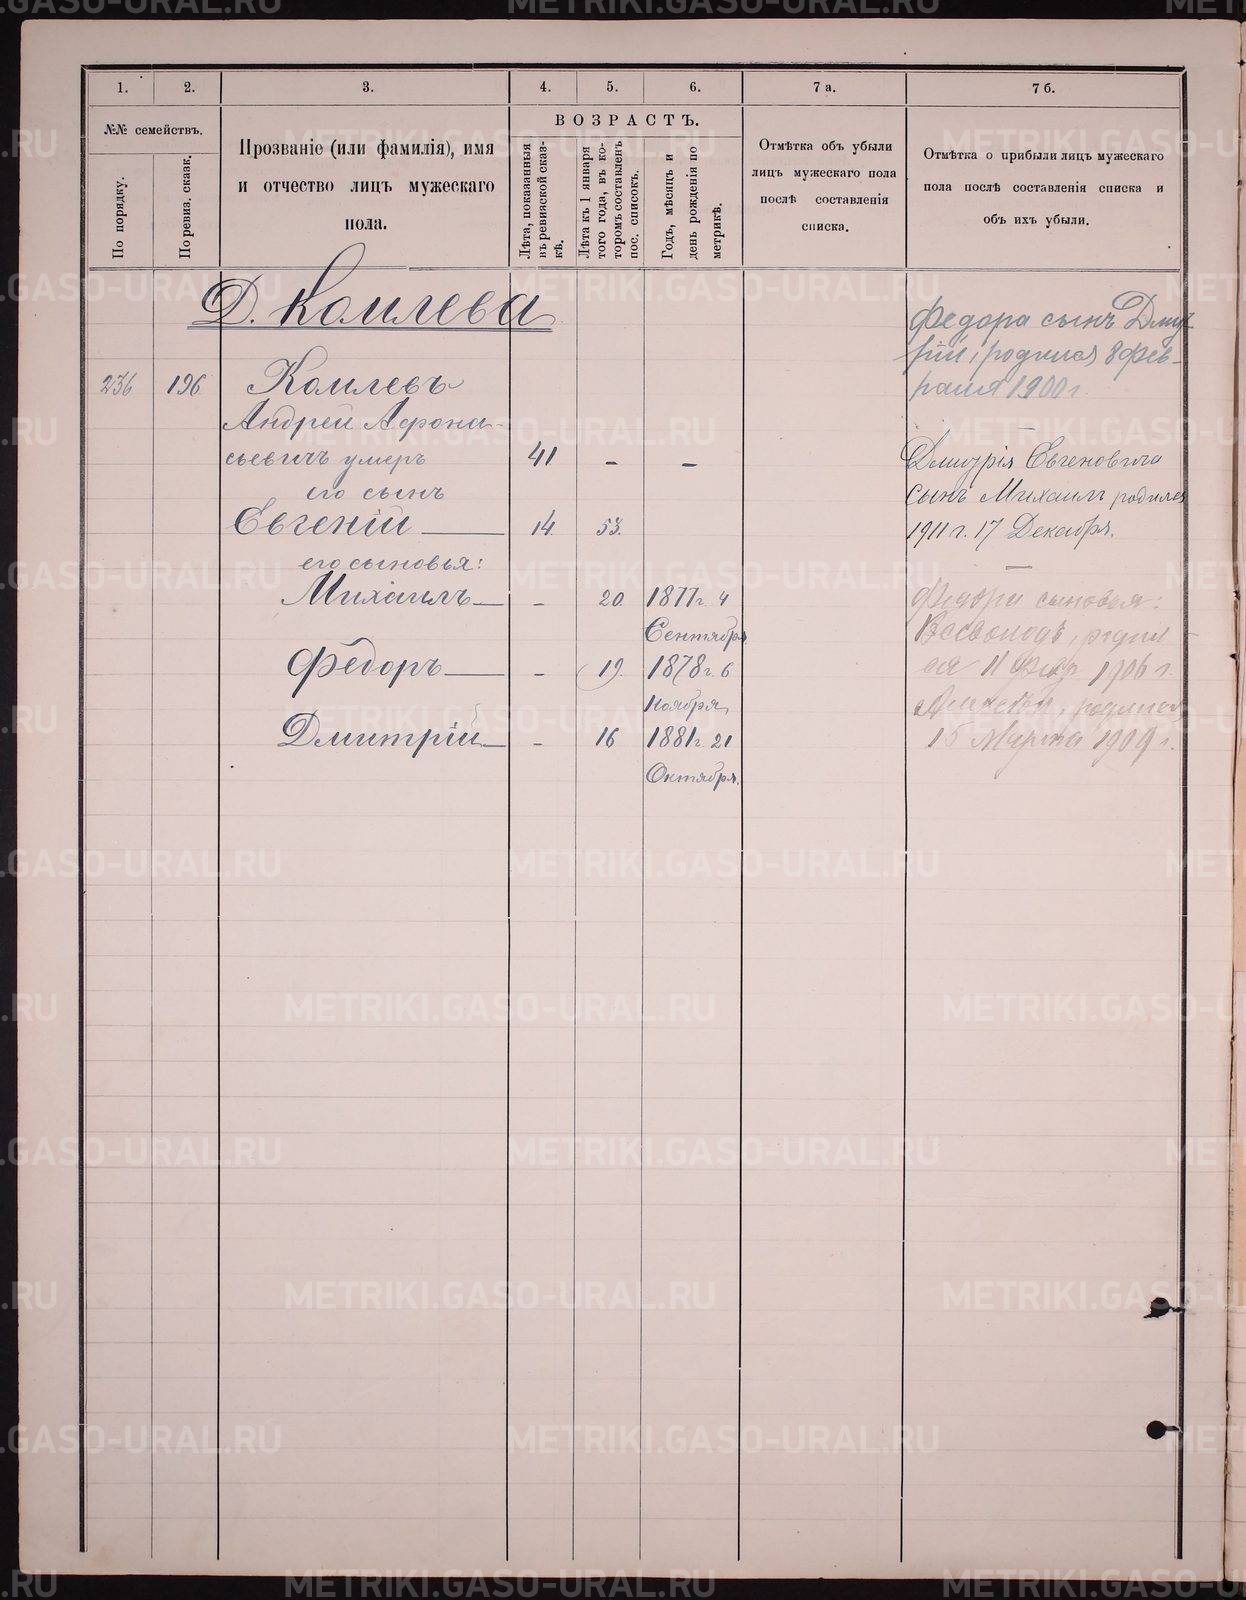 1. 2. 3. 4. 5. 6. 7 а. 7 б.
№№ семействъ.
По порядку.
По ревиз. сказк.
Прозваніе (или фамилія), имя
и отчество лицъ мужескаго
пола.
ВОЗРАСТЪ.
Лѣта, показанныя
въ ревизской сказ-
кѣ.
Лѣта къ 1 января
того года, въ ко-
торомъ составленъ
пос. списокъ.
Годъ, мѣсяцъ и
день рожденія по
метрикѣ.
Отмѣтка объ убыли
лицъ мужескаго пола
послѣ составленія
списка.
Отмѣтка о прибыли лицъ мужескаго
пола послѣ составленія списка и
объ ихъ убыли.
Д. Комлева
236 196 Комлевъ
Андрей Афона-
сьевичъ умеръ 41 - -
его сынъ
Евгеній 14 53.
его сыновья:
Михаилъ - 20. 1877 г. 4
Сентября
Федоръ - 19. 1878 г. 6
Ноября
Дмитрій - 16 1881 г. 21
Октября.
Федора сынъ Дми-
трій, родился 8 Фев-
раля 1900 г.
Дмитрія Евгеновича
сынъ Михаилъ родился
1911 г. 17 Декабря.
Федора сыновья:
Всеволодъ, родил-
ся 11 1906 г.
родился
15 Марта 1909 г.
METRIKI.GASO-URAL.RU